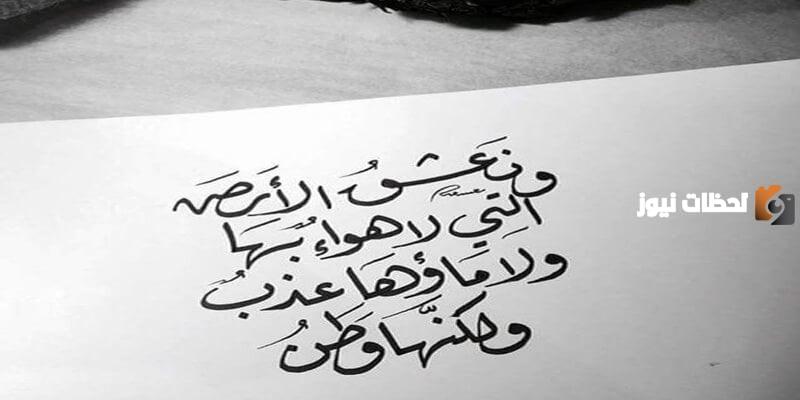 ونَعَشقُ الأَرضَ
التي لا هواءُ بهَا
ولَا مَاؤهَا عذبُ
ولكنَّها وَطَنُ
لحظات نيوز